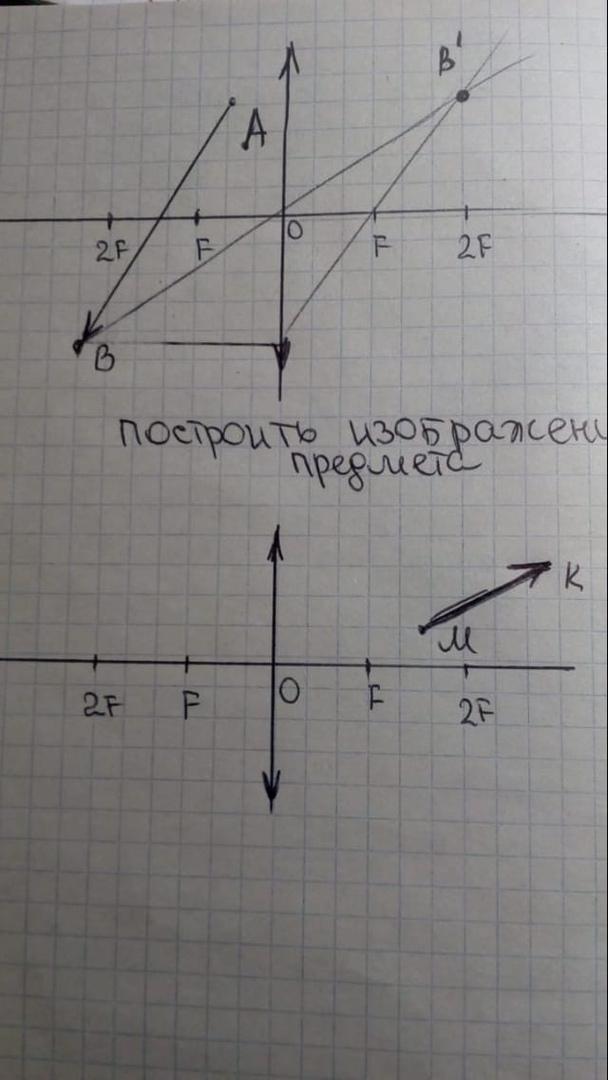 B'
A
O
2F F F 2F
B
построить изображени
предмета
K
M
O
2F F F 2F